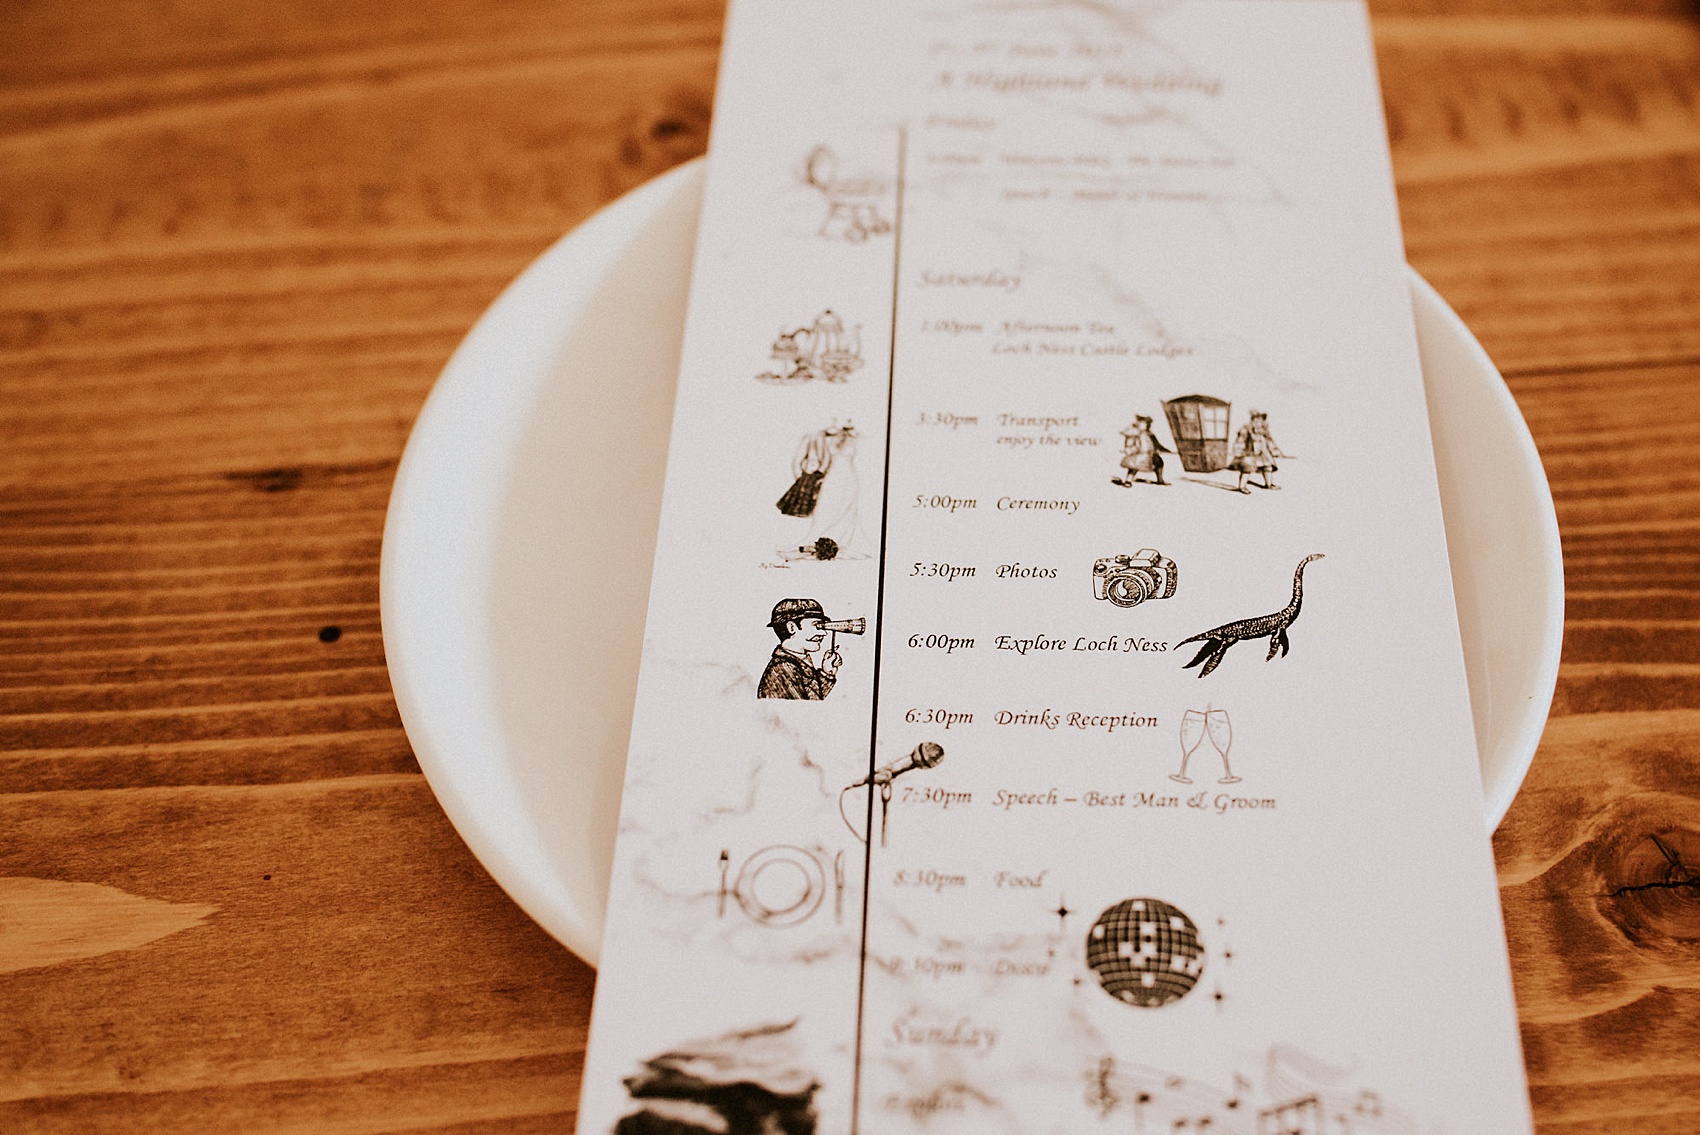 A Highland Wedding
Friday
Saturday
1:00pm Afternoon Tea
Loch Ness Castle Lodges
3:30pm Transport
enjoy the view
5:00pm Ceremony
5:30pm Photos
6:00pm Explore Loch Ness
6:30pm Drinks Reception
7:30pm Speech – Best Man & Groom
8:30pm Food
9:30pm Disco
Sunday